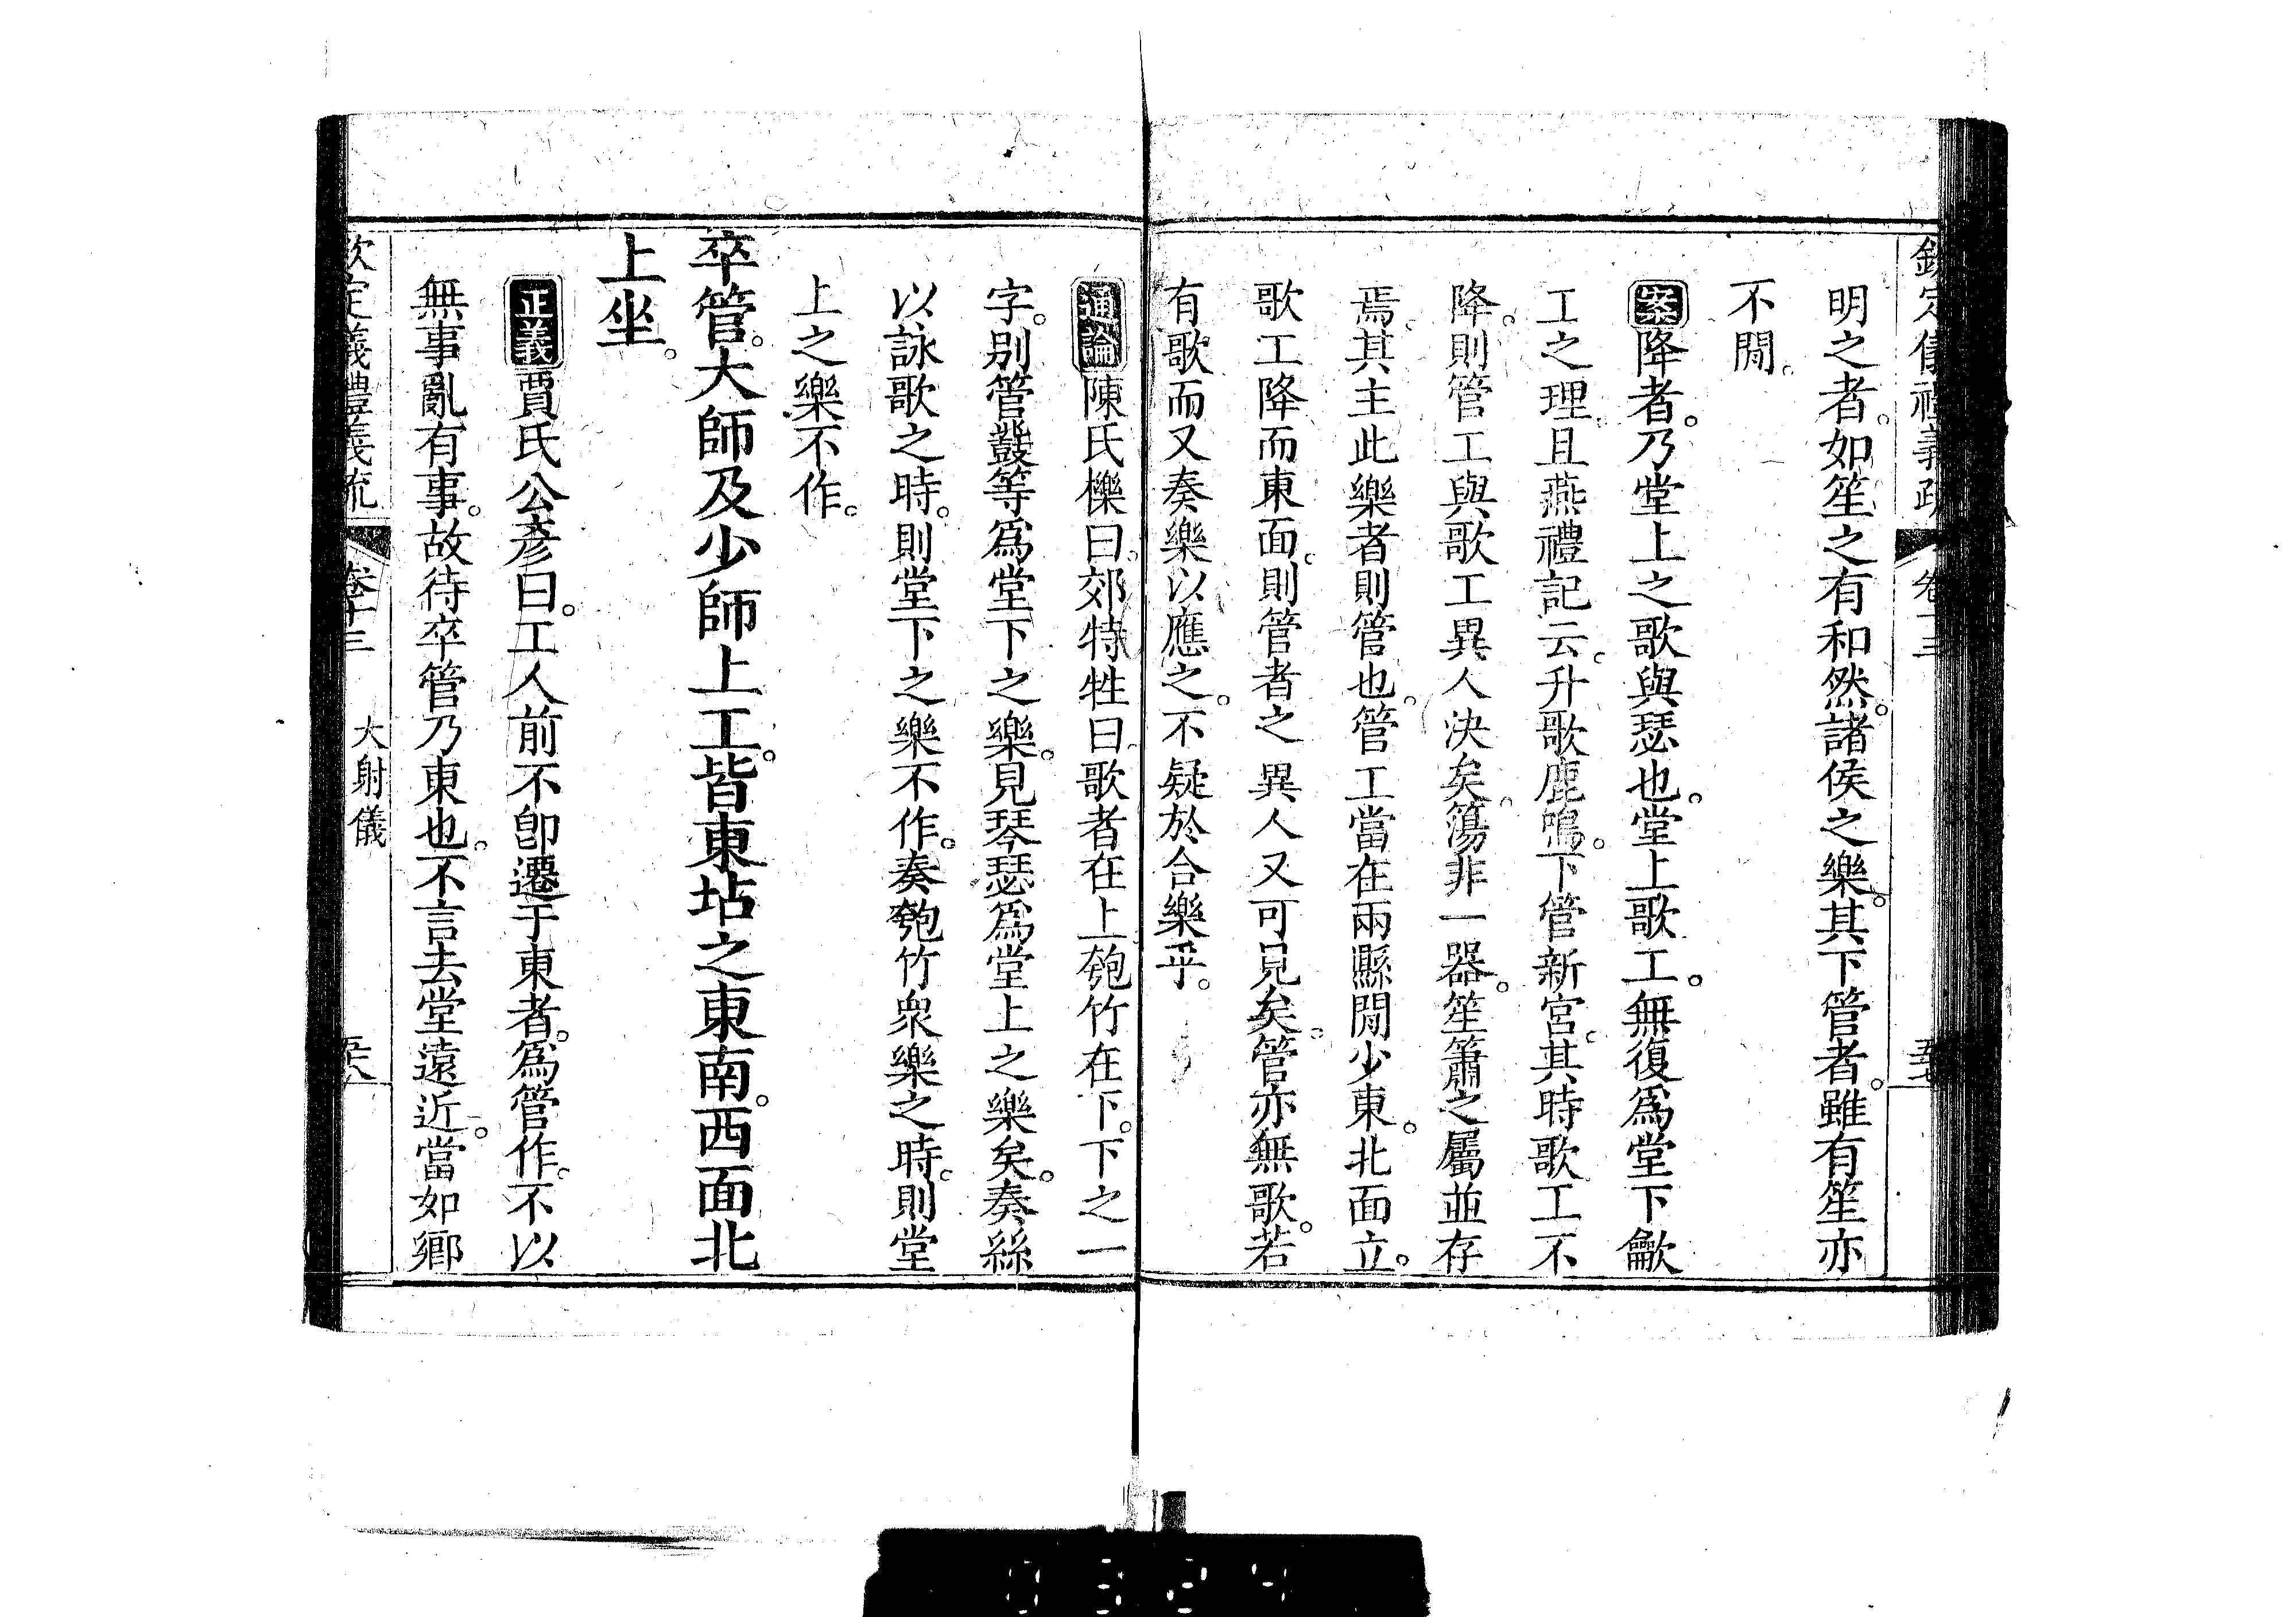 欽定儀禮義疏 卷十三
明之者。如笙之有和然。諸侯之樂。其下管者。雖有笙亦
不閒。
案降者。乃堂上之歌與瑟也。堂上歌工。無復爲堂下龡
工之理。且燕禮記云。升歌鹿鳴。下管新宮。其時歌工不
降。則管工與歌工異人決矣。簜非一器。笙簫之屬並存
焉。其主此樂者則管也。管工當在兩縣閒少東。北面立。
歌工降而東面。則管者之異人又可見矣。管亦無歌。若
有歌而又奏樂以應之。不疑於合樂乎。
通論陳氏櫟曰。郊特牲曰。歌者在上匏竹在下。下之一
字。別管鼗等爲堂下之樂。見琴瑟爲堂上之樂矣。奏絲
以詠歌之時。則堂下之樂不作。奏匏竹衆樂之時。則堂
上之樂不作。
卒管。大師及少師上工。皆東坫之東南。西面北
上坐。
正義賈氏公彥曰。工人前不卽遷于東者。爲管作。不以
無事亂有事。故待卒管乃東也。不言去堂遠近。當如鄉
欽定儀禮義疏 卷十三 大射儀